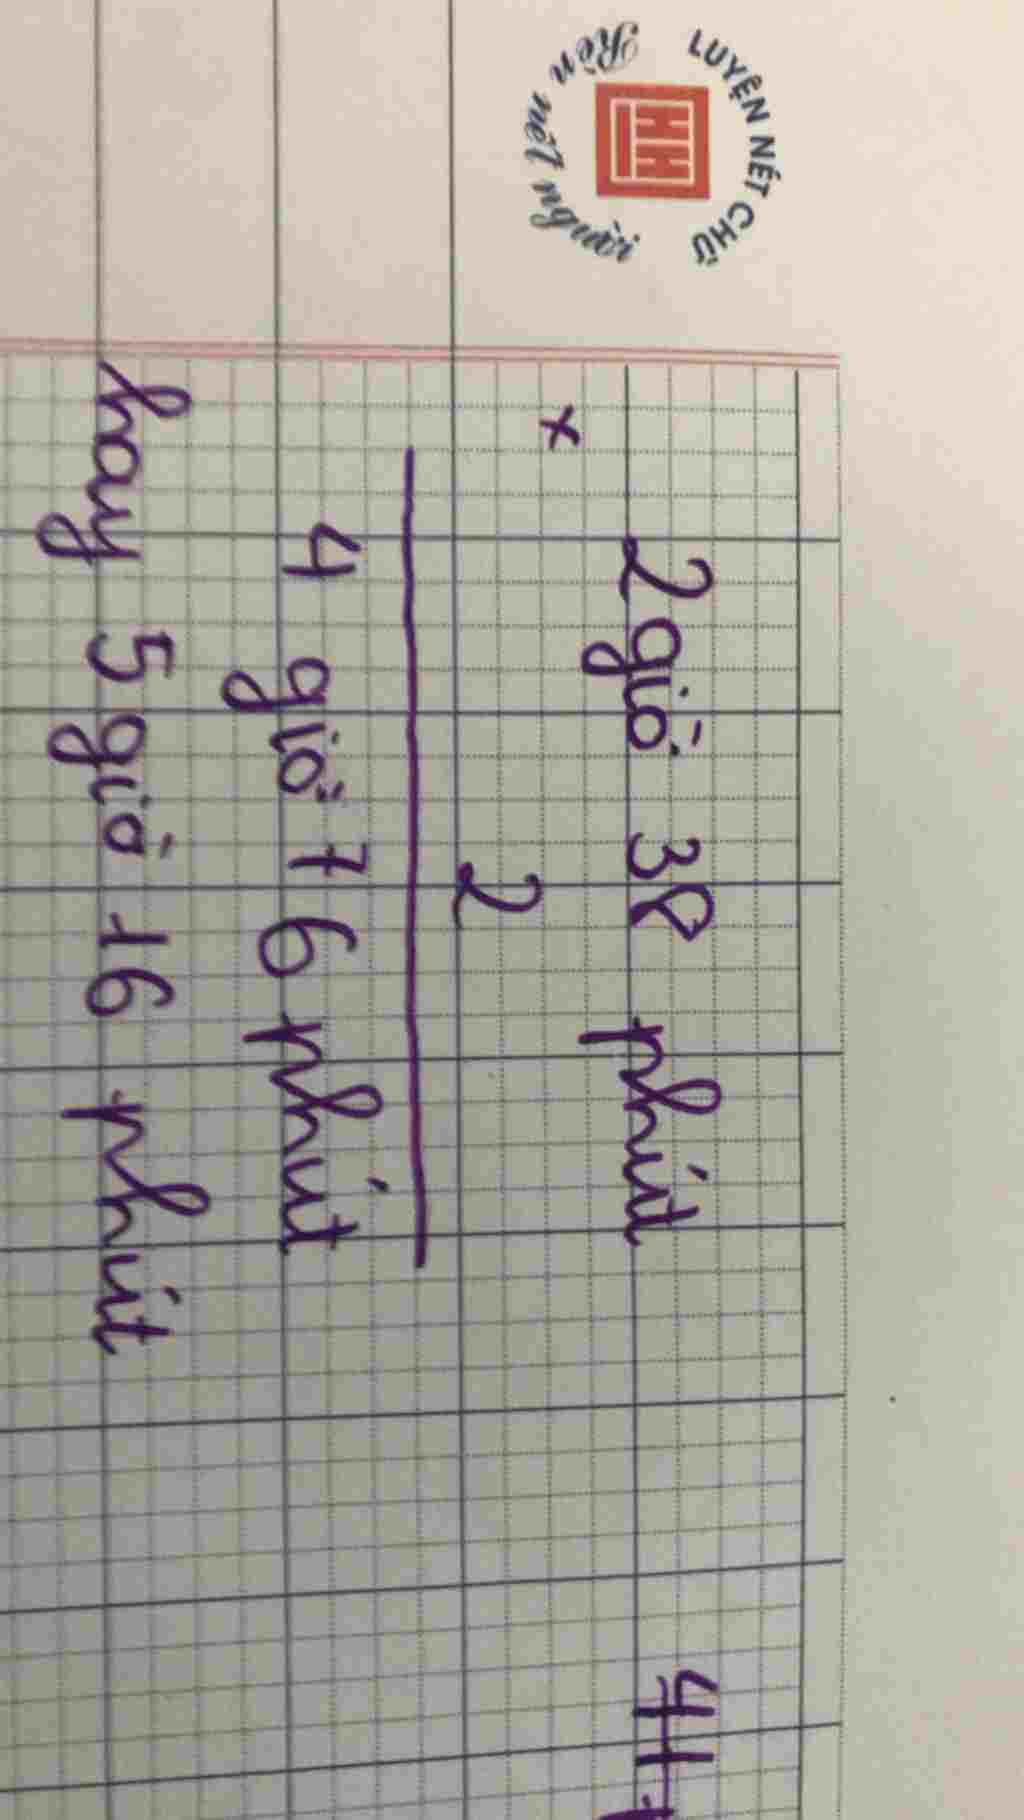 LUYỆN NÉT CHỮ
Rèn nết người
2 giờ 38 phút
×
2
4 giờ 76 phút
hay 5 giờ 16 phút